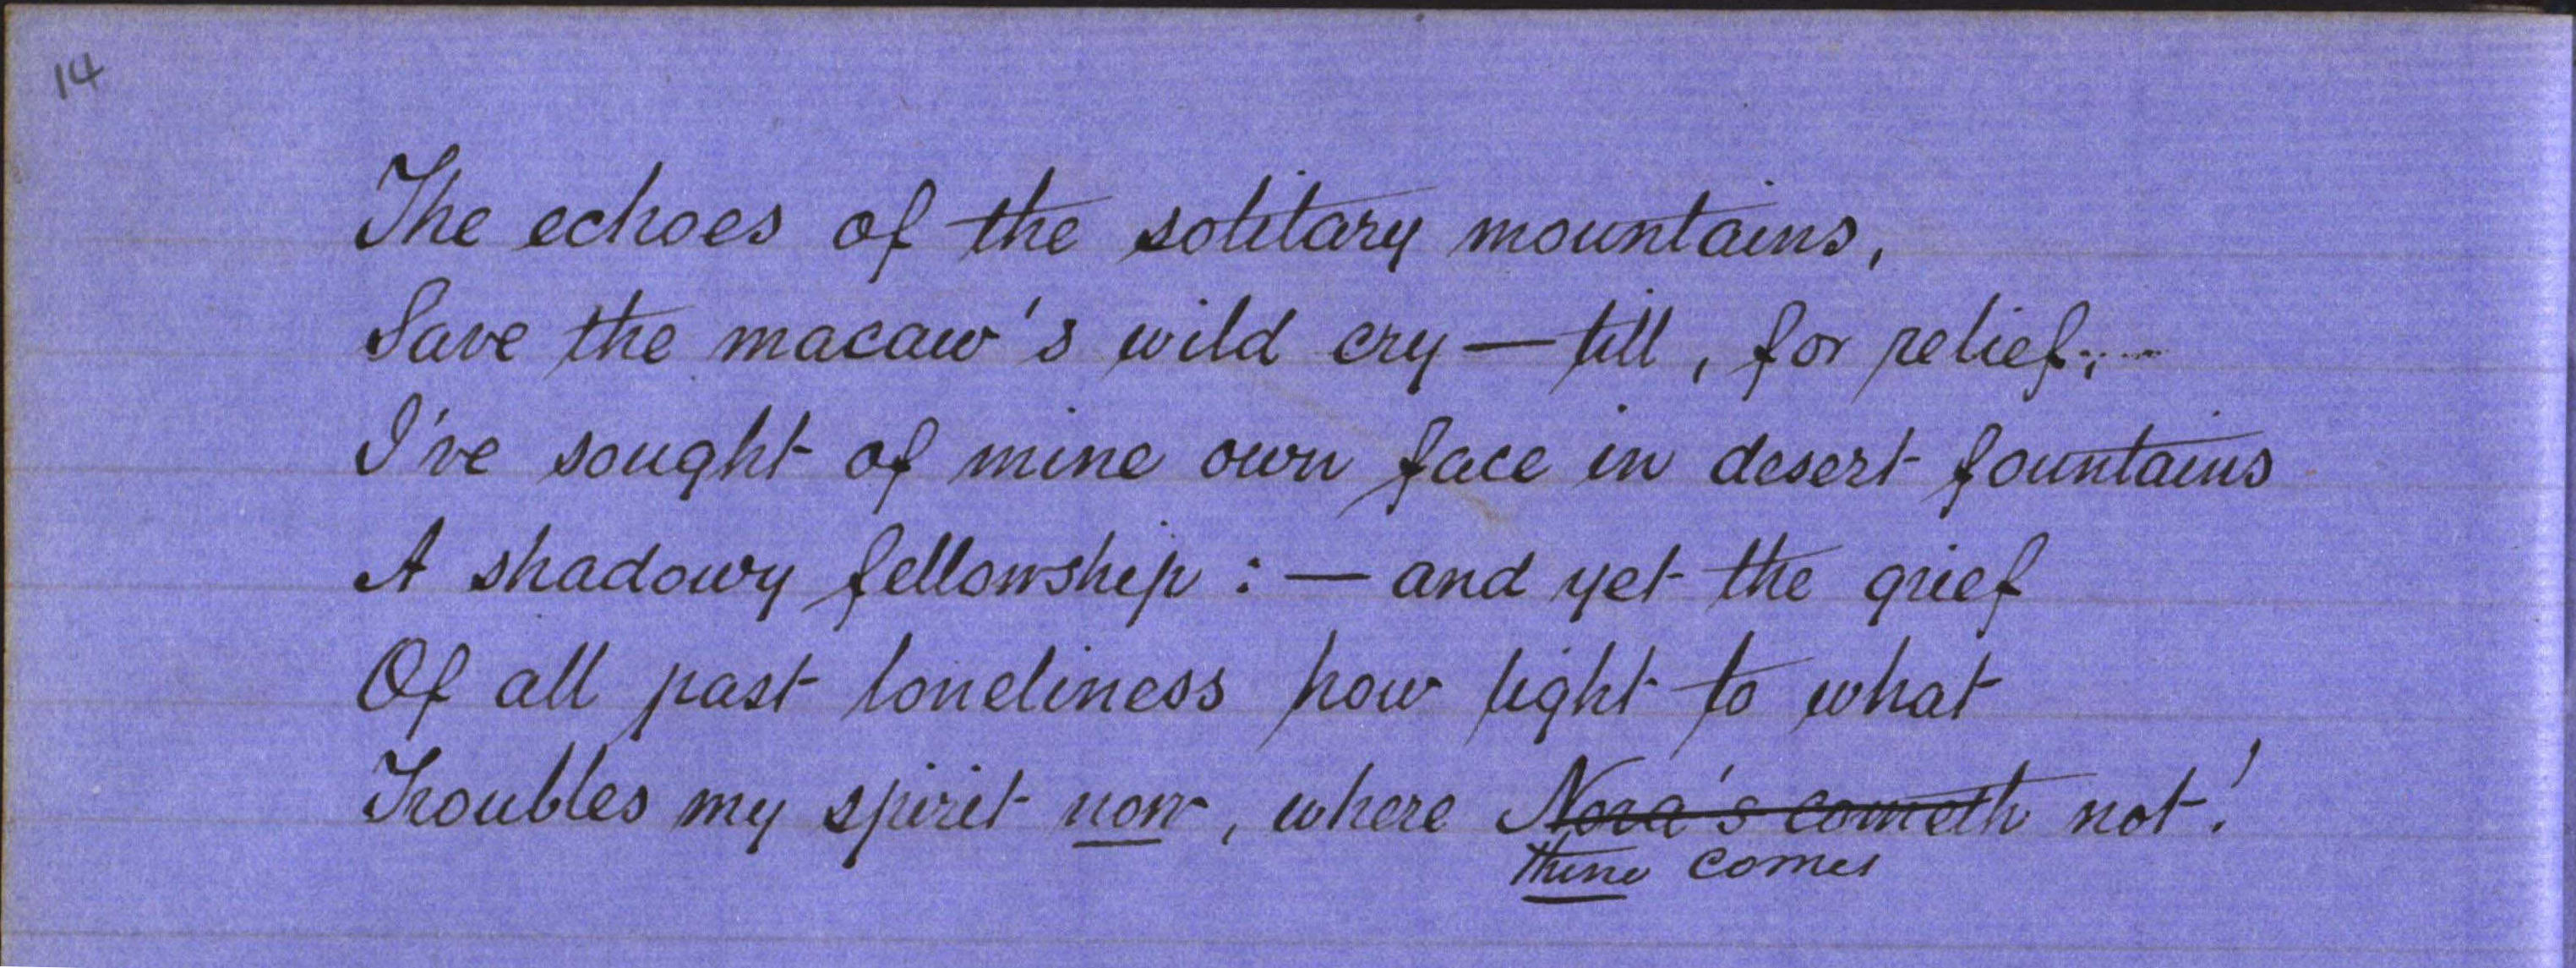 14
The echoes of the solitary mountains,
Save the macaw's wild cry — till, for relief,
I've sought of mine own face in desert fountains
A shadowy fellowship : — and yet the grief
Of all past loneliness how light to what
Troubles my spirit now, where Nora's cometh not!
thine comes